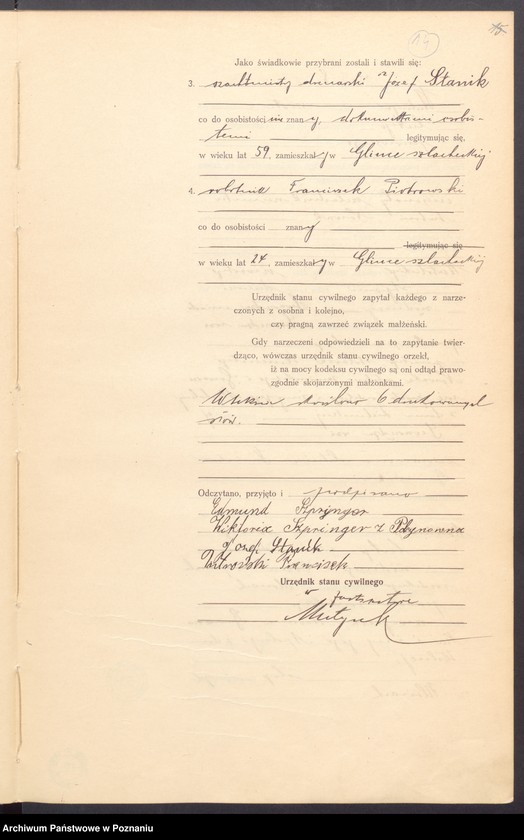 15
15
Jako świadkowie przybrani zostali i stawili się:
3. szachtmistrz drenarski Józef Stanik
co do osobistości nie znany, dokumentami osobis-
temi legitymując się,
w wieku lat 59, zamieszkały w Glince szlacheckiej
4. robotnik Franciszek Piotrowski
co do osobistości znany
legitymując się
w wieku lat 24, zamieszkały w Glince szlacheckiej
Urzędnik stanu cywilnego zapytał każdego z narze-
czonych z osobna i kolejno,
czy pragną zawrzeć związek małżeński.
Gdy narzeczeni odpowiedzieli na to zapytanie twier-
dząco, wówczas urzędnik stanu cywilnego orzekł,
iż na mocy kodeksu cywilnego są oni odtąd prawo-
zgodnie skojarzonymi małżonkami.
W tekście skreślono 6 drukowanych
słów.
Odczytano, przyjęto i podpisano
Edmund Szpringer
Wiktoria Szpringer z
Józef Stanik
Piotrowski Franciszek
Urzędnik stanu cywilnego
w zastępstwie
Archiwum Państwowe w Poznaniu